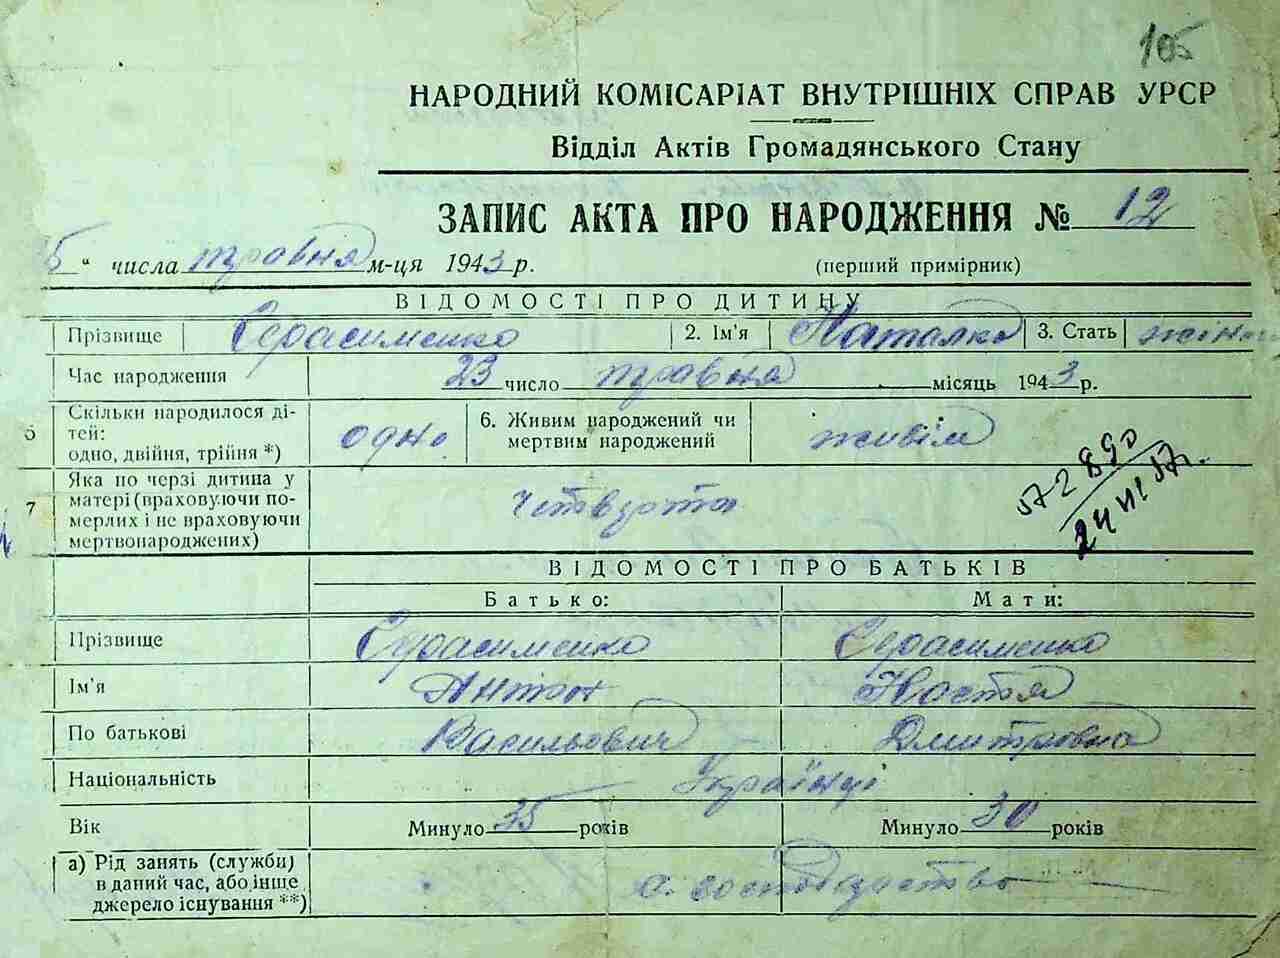 105
НАРОДНИЙ КОМІСАРІАТ ВНУТРІШНІХ СПРАВ УРСР
Відділ Актів Громадянського Стану
ЗАПИС АКТА ПРО НАРОДЖЕННЯ № 12
5 " числа травня м-ця 1943 р. (перший примірник)
ВІДОМОСТІ ПРО ДИТИНУ
Прізвище Герасименко 2. Ім'я Наталка 3. Стать жіноч
Час народження 23 число травня місяць 1943 р.
5 Скільки народилося дітей: одно, двійня, трійня *) одно 6. Живим народжений чи мертвим народжений живим
7 Яка по черзі дитина у матері (враховуючи померлих і не враховуючи мертвонароджених) четверта
572890
24 VII 57 г.
ВІДОМОСТІ ПРО БАТЬКІВ
Батько: Мати:
Прізвище Герасименко Герасименко
Ім'я Антон Настя
По батькові Васильович Дмитровна
Національність Українці
Вік Минуло 35 років Минуло 30 років
а) Рід занять (служби) в даний час, або інше джерело існування **) с. господарство